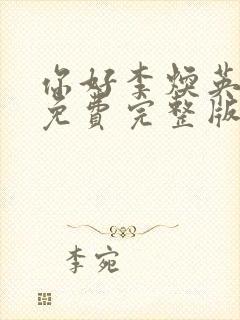 你好李焕英
免费完整版
李宛